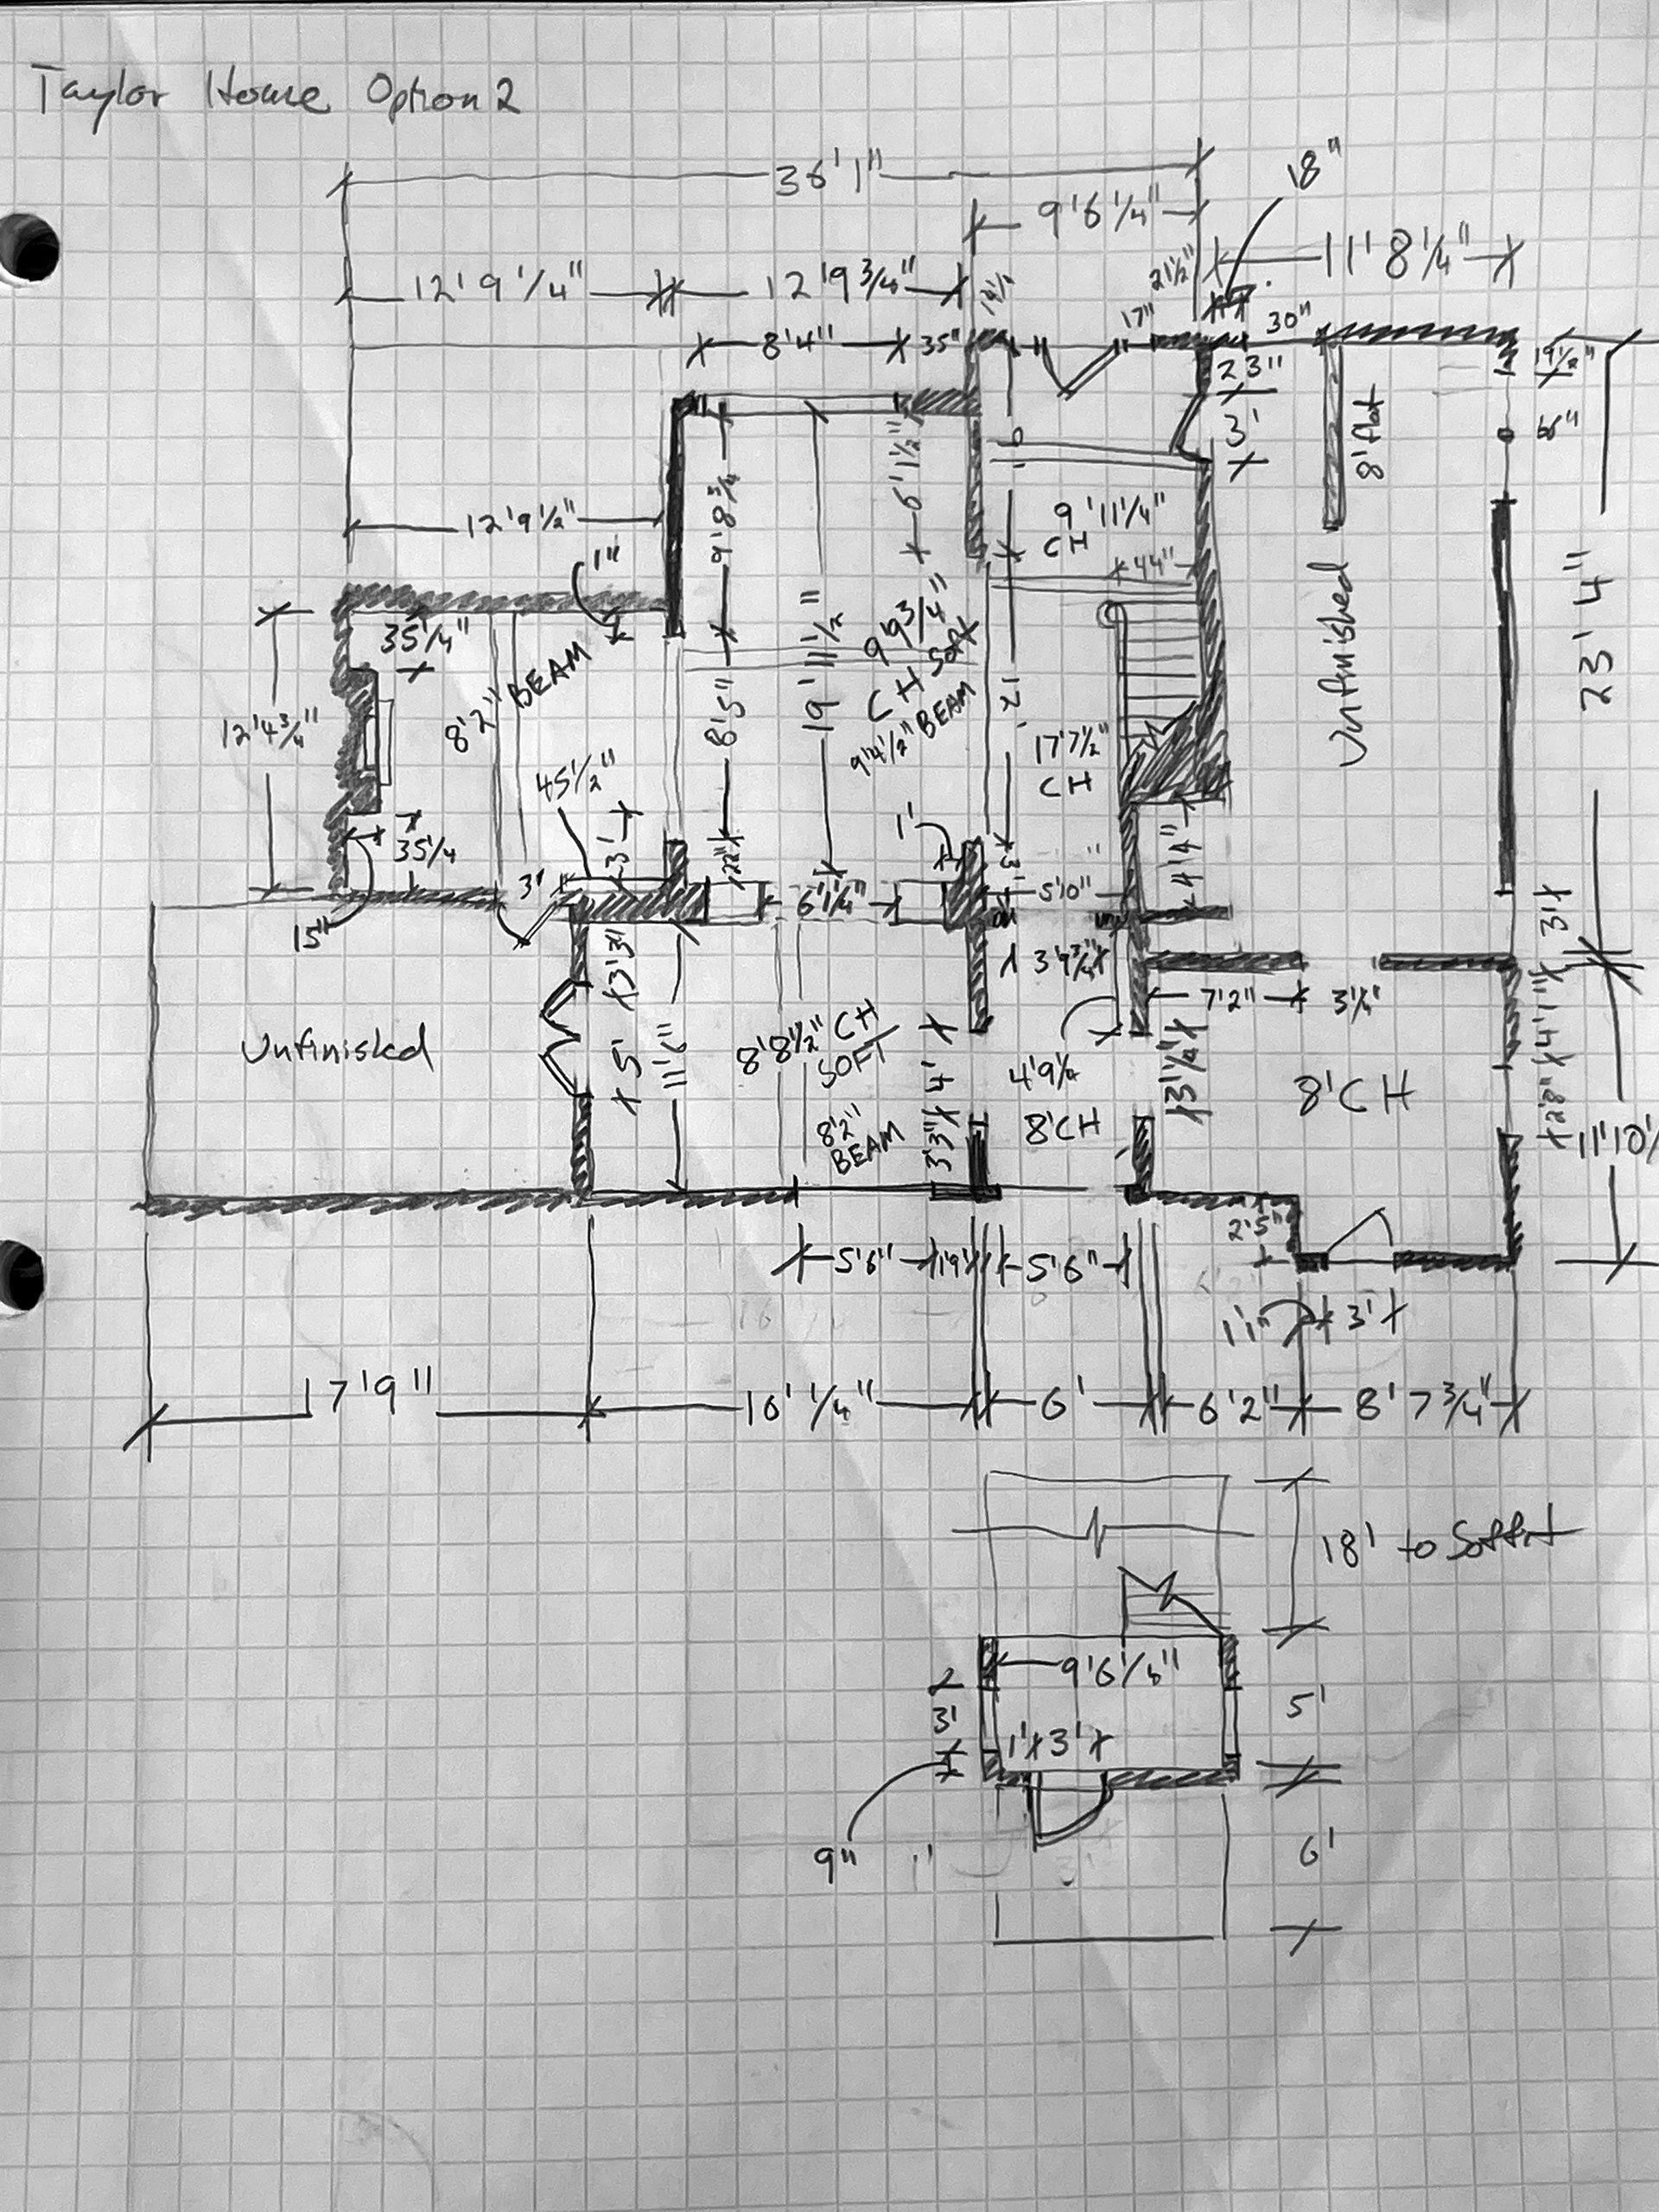 Taylor Home Option 2
36'1"
18"
9'6 1/4"
11'8 1/4"
12'9 1/4"
12'9 3/4"
21 1/2"
17"
30"
8'4"
35"
23"
19 1/2"
3'
8' flat
12'9 1/2"
9'8 3/4
6'1 1/2"
9'11 1/4"
CH
44"
1"
23'4"
Unfinished
35 1/4"
8'2" BEAM
19'11 1/2"
9'9 3/4"
CH Soft
9'4 1/2" BEAM
12'4 3/4"
8'5"
21'
17'7 1/2"
CH
45 1/2"
3'
1'
4'4"
35 1/4
22"
3'
6'1/4"
3'
5'0"
15"
3'
3'3"
3'9 3/4"
7'2"
Unfinished
5'
11'6"
8'8 1/2" CH
SOFT
4'
4'9 1/4
8'CH
8'CH
4'1"
2'8"
8'2"
BEAM
3'3"
2'5"
5'6"
19"
5'6"
1'1"
3'
17'9"
16'1/4"
6'
6'2"
8'7 3/4"
18' to Soffit
9'6 1/8"
3'
5'
1' 3'
9"
6'